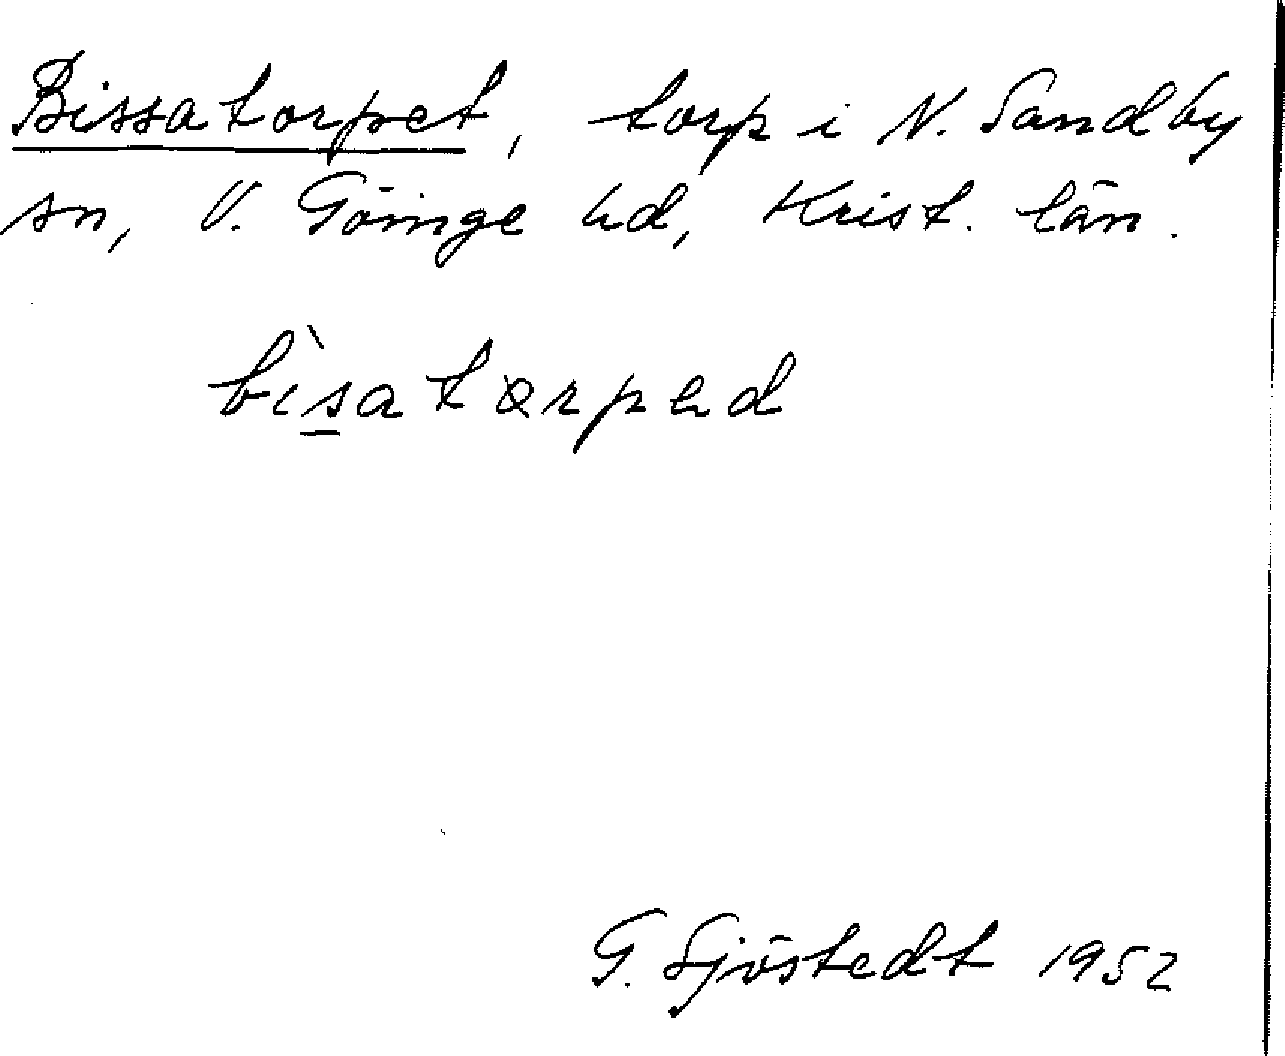 Bissatorpet, torp i N. Sandby
sn, V. Göinge hd, Krist. län.
bìsatɷrpəd
G. Sjöstedt 1952